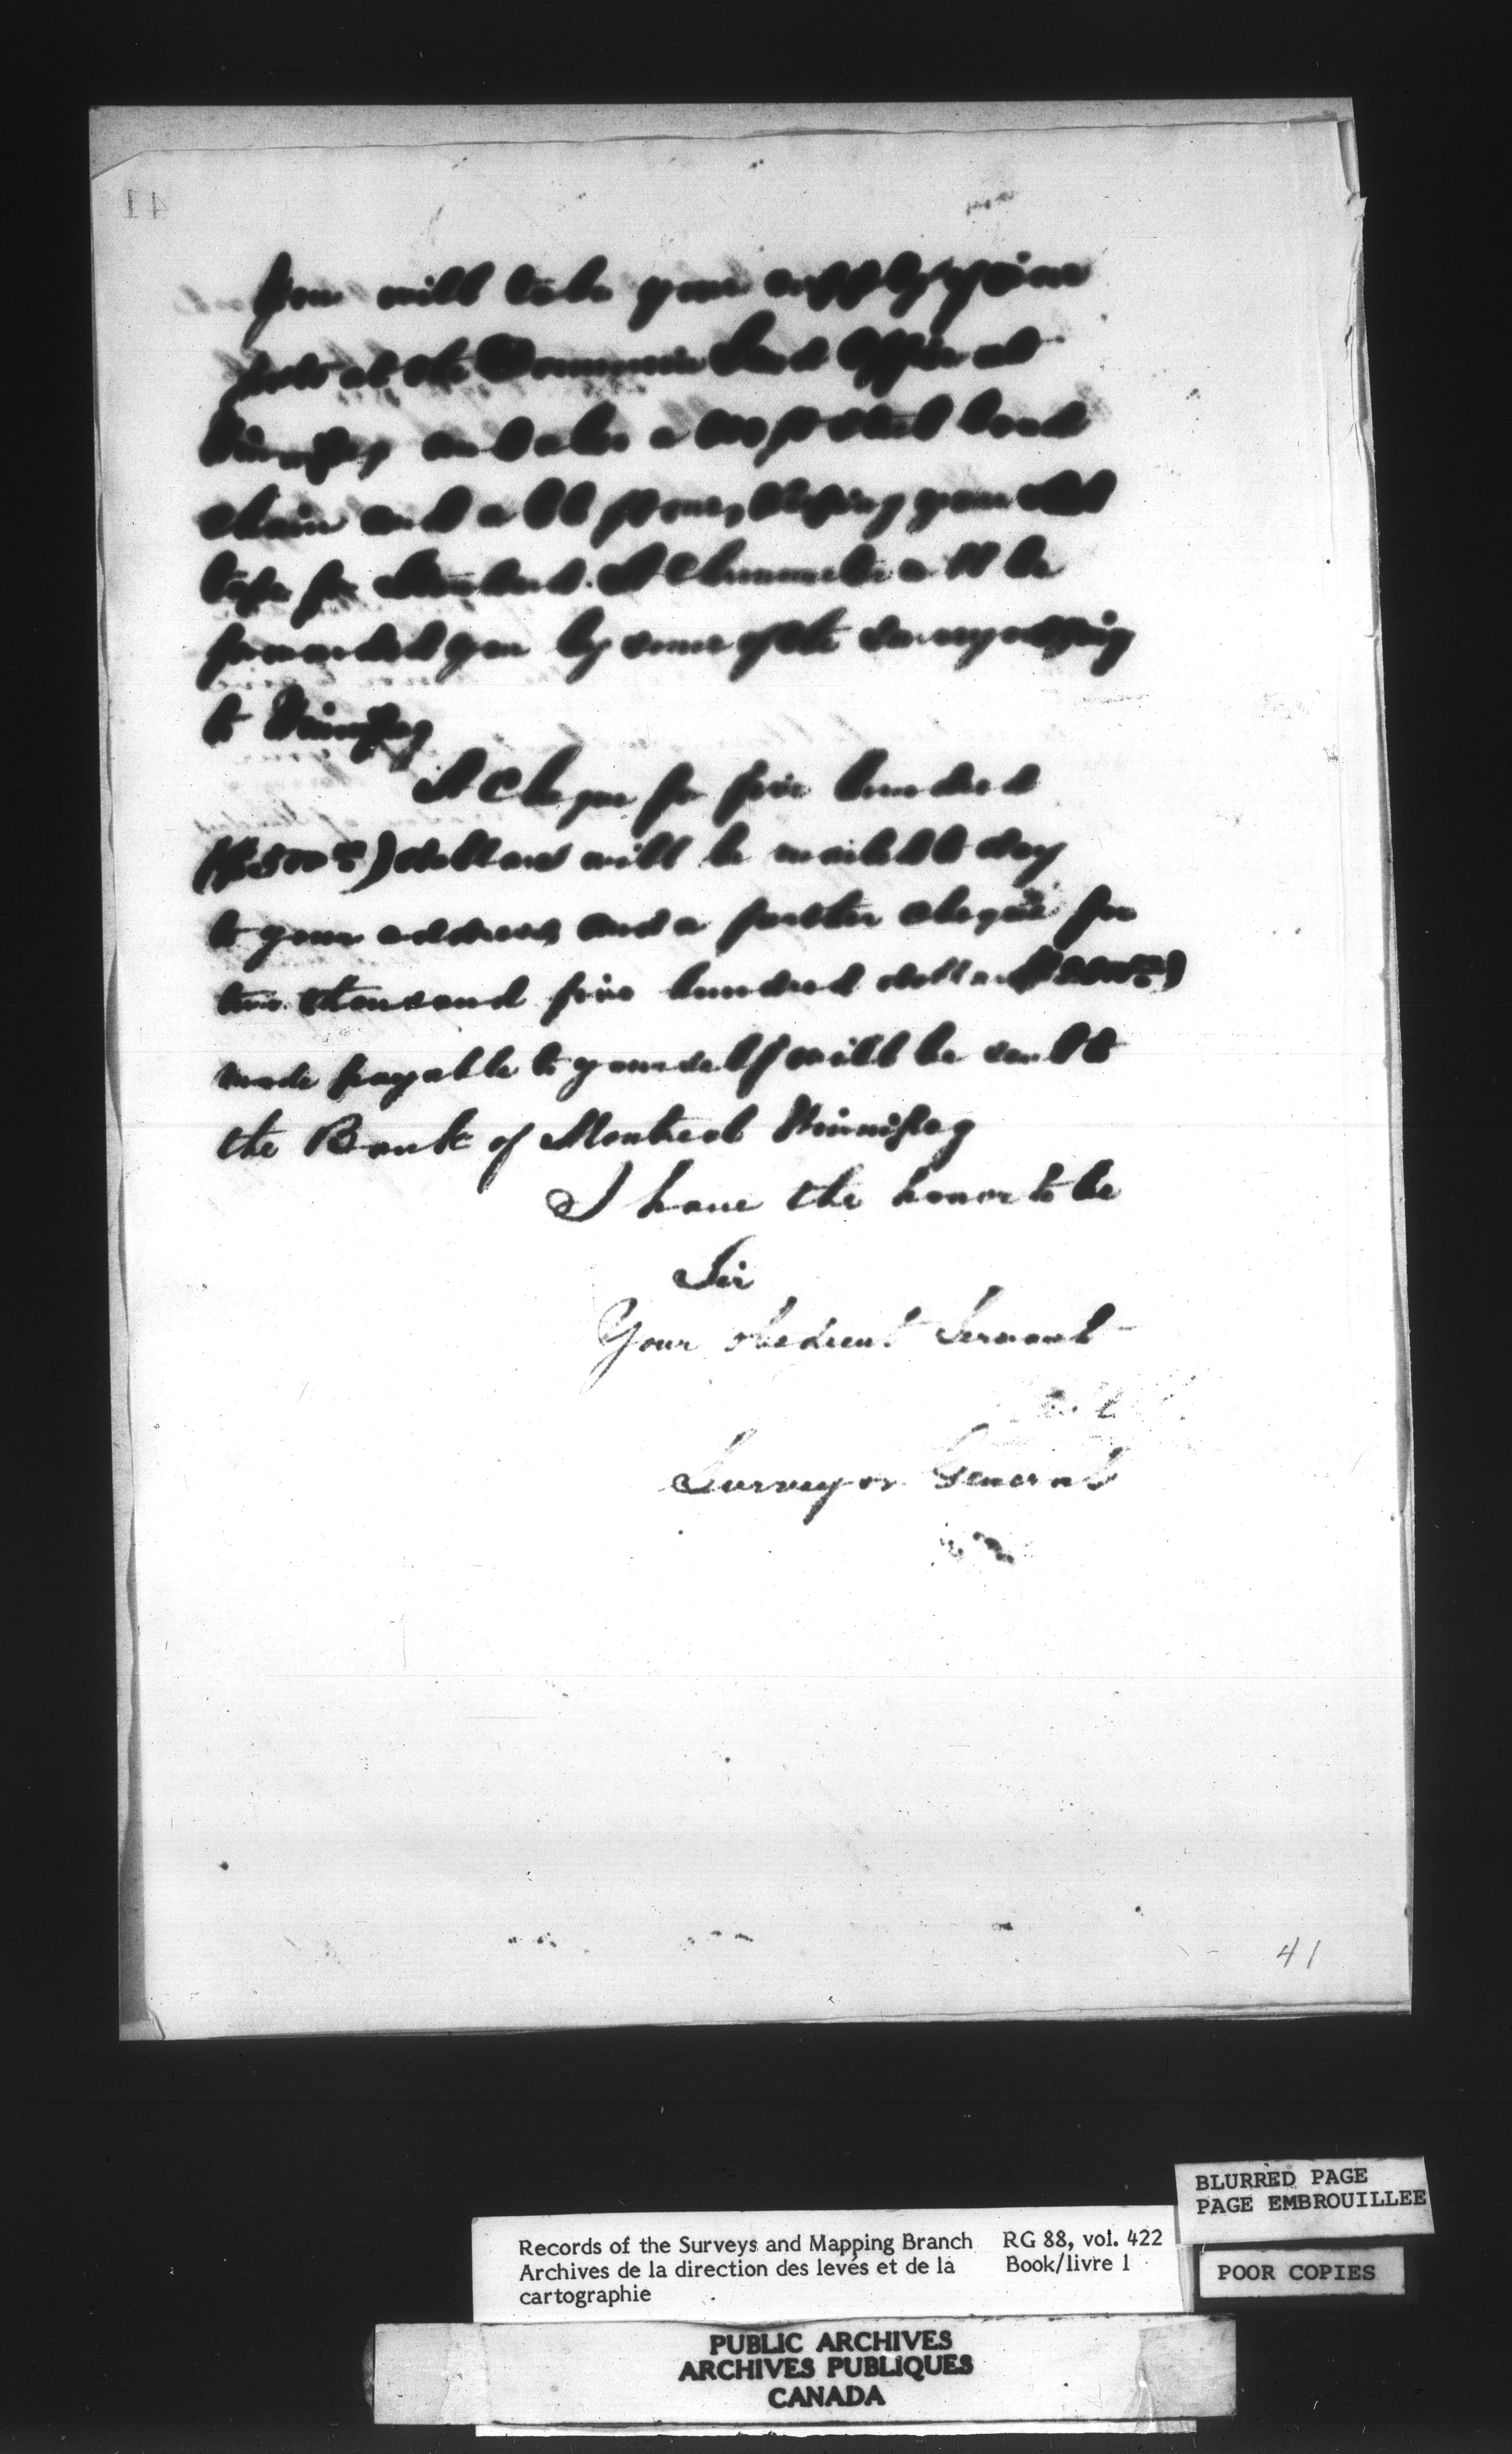 You will take your supply of iron
posts at the Dominion Land Office at
Winnipeg and also a 100 ft steel band
chain and all pins, keeping your old
tape for Standard. A Chronometer will be
forwarded you by some of the surveyors going
to Winnipeg
A Cheque for five hundred
($500.00) dollars will be mailed to day
to your address and a further cheque for
two thousand five hundred dollars ($2500.00)
made payable to yourself will be sent to
the Bank of Montreal Winnipeg
I have the honor to be
Sir
Your obedient Servant
Surveyor General
41
BLURRED PAGE
PAGE EMBROUILLEE
Records of the Surveys and Mapping Branch RG 88, vol. 422
Archives de la direction des levés et de la Book/livre 1
cartographie
POOR COPIES
PUBLIC ARCHIVES
ARCHIVES PUBLIQUES
CANADA